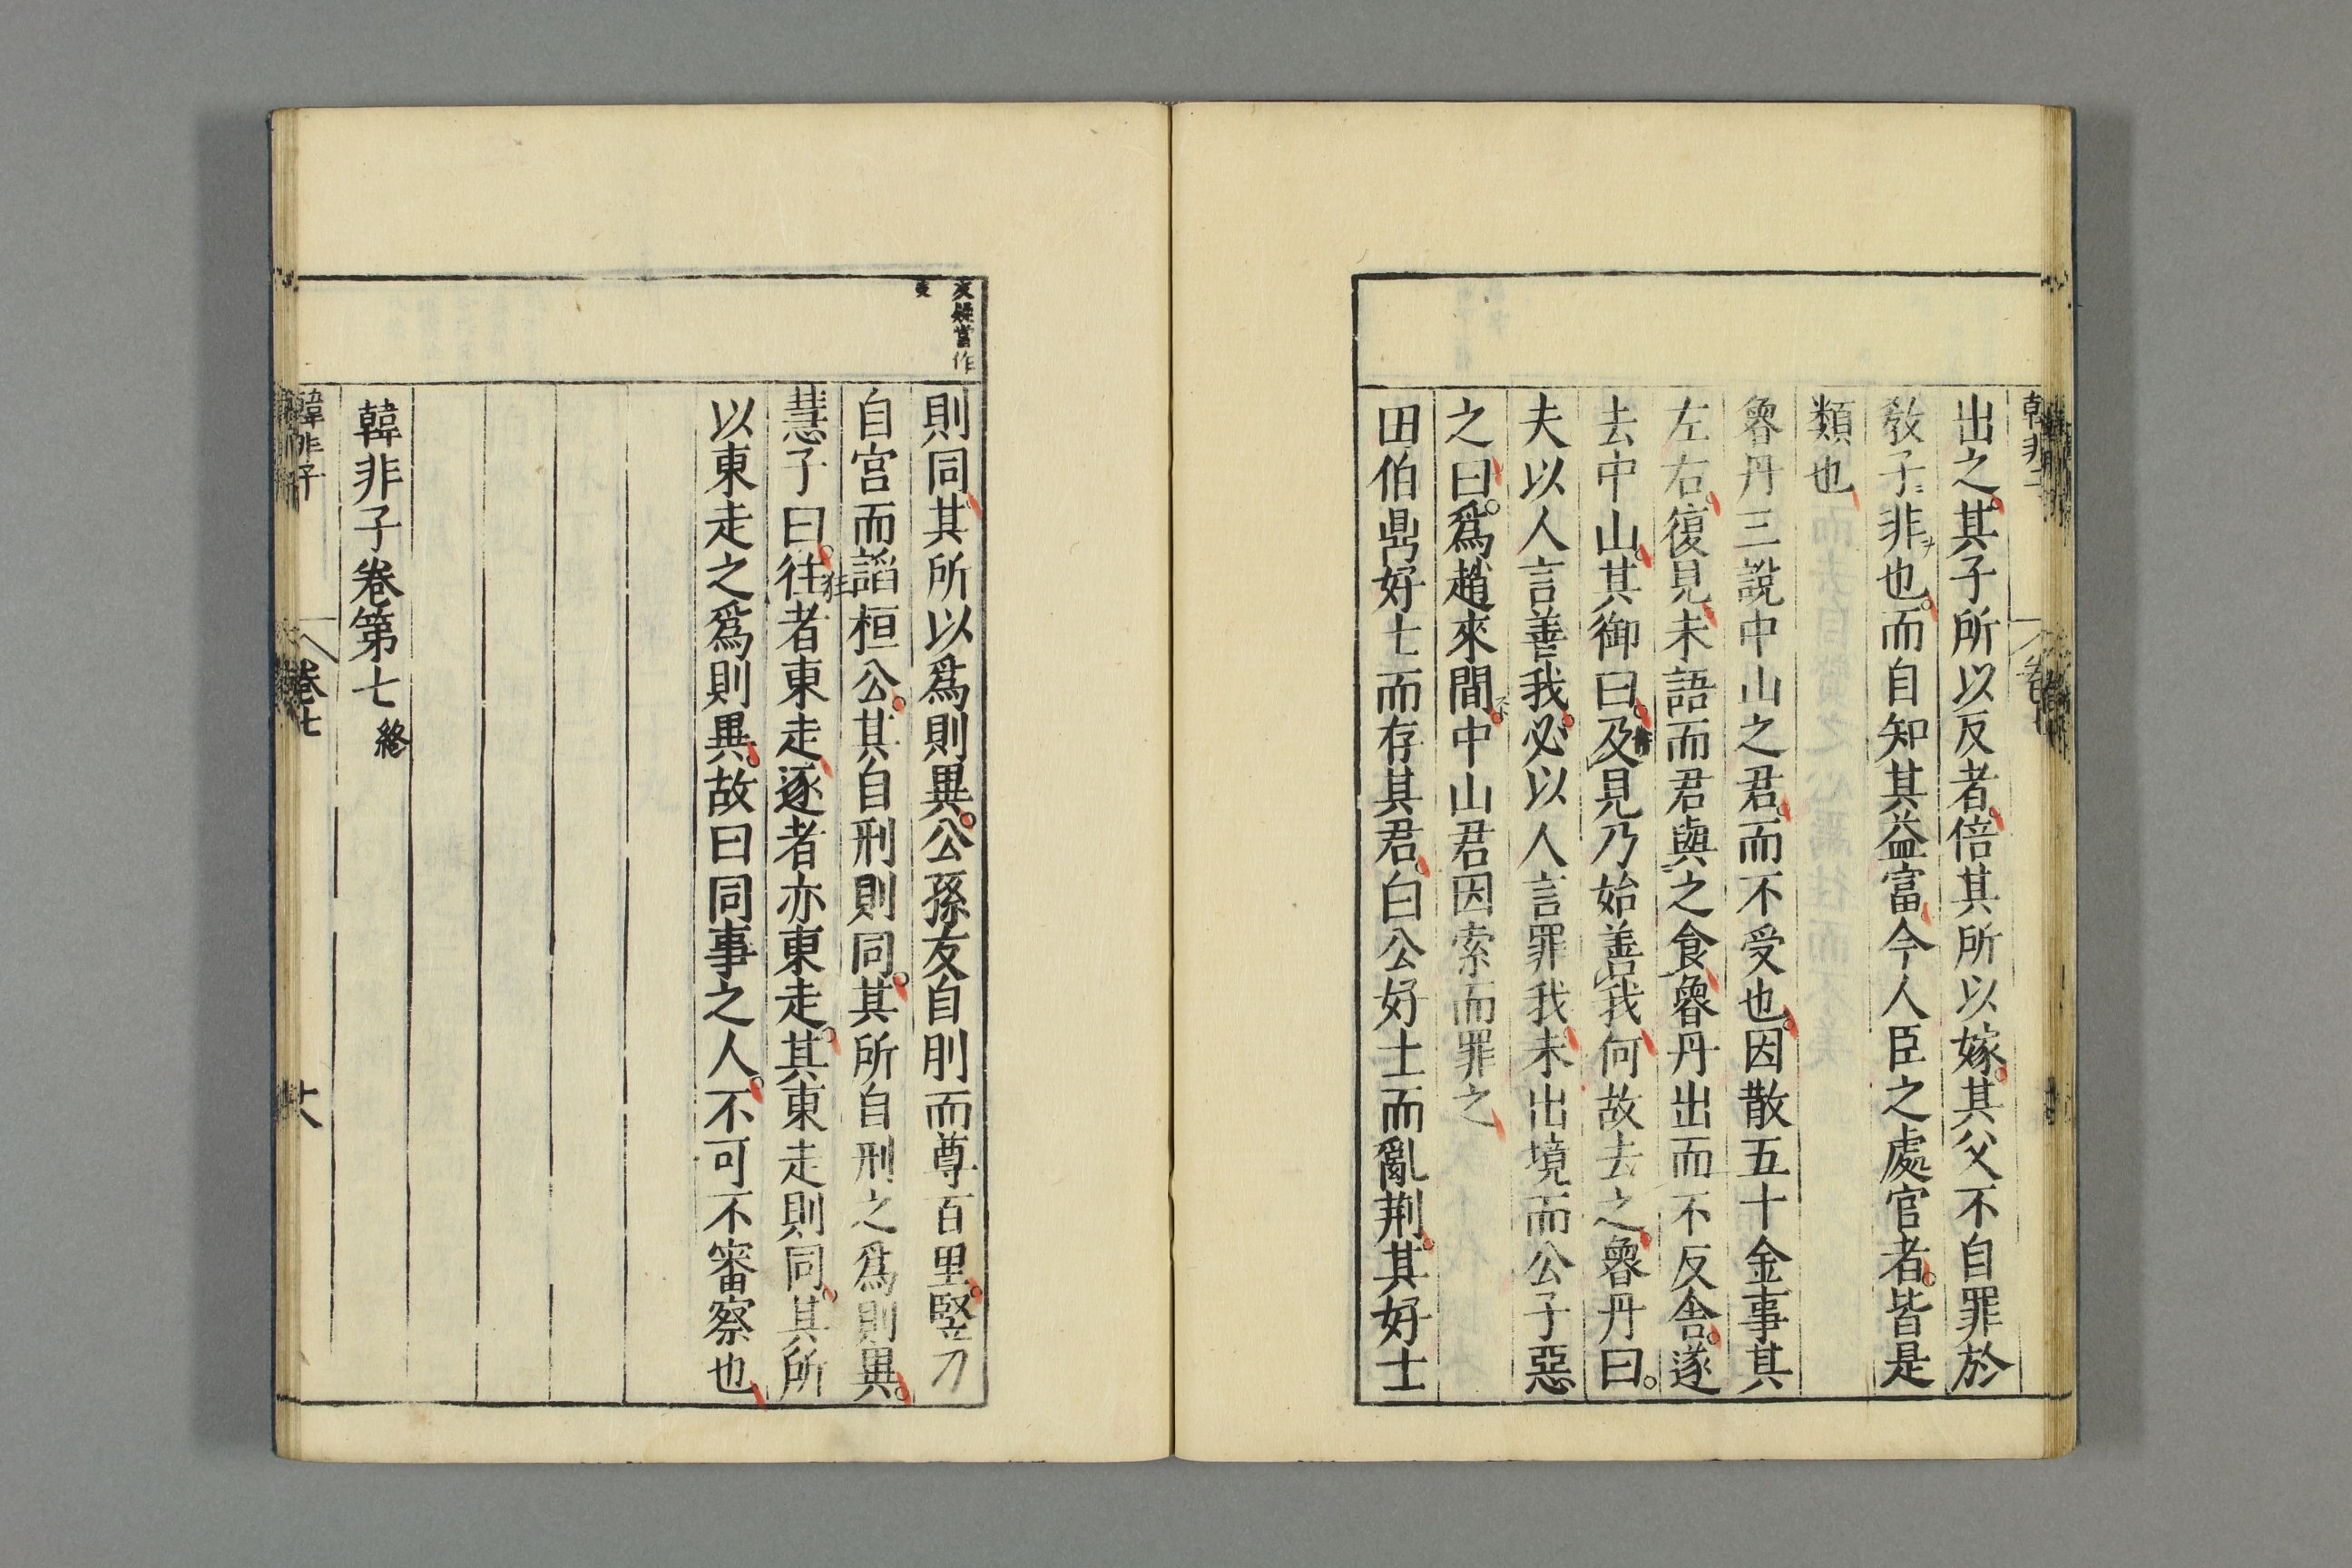 出之其子所以反者倍其所以嫁其父不自罪於
敎子非也而自知其益富今人臣之處官者皆是
類也
魯丹三說中山之君而不受也因散五十金事其
左右復見未語而君與之食魯丹出而不反舍遂
去中山其御曰及見乃始善我何故去之魯丹曰
夫以人言善我必以人言罪我未出境而公子惡
之曰爲趙來間中山君因索而罪之
田伯鼎好士而存其君白公好士而亂荆其好士
友疑當作
則同其所以爲則異公孫友自刖而尊百里竪刀
自宮而謟桓公其自刑則同其所自刑之爲則異
慧子曰往者東走逐者亦東走其東走則同其所
狂
以東走之爲則異故曰同事之人不可不審察也
韓非子卷第七 終
韓非子 卷七